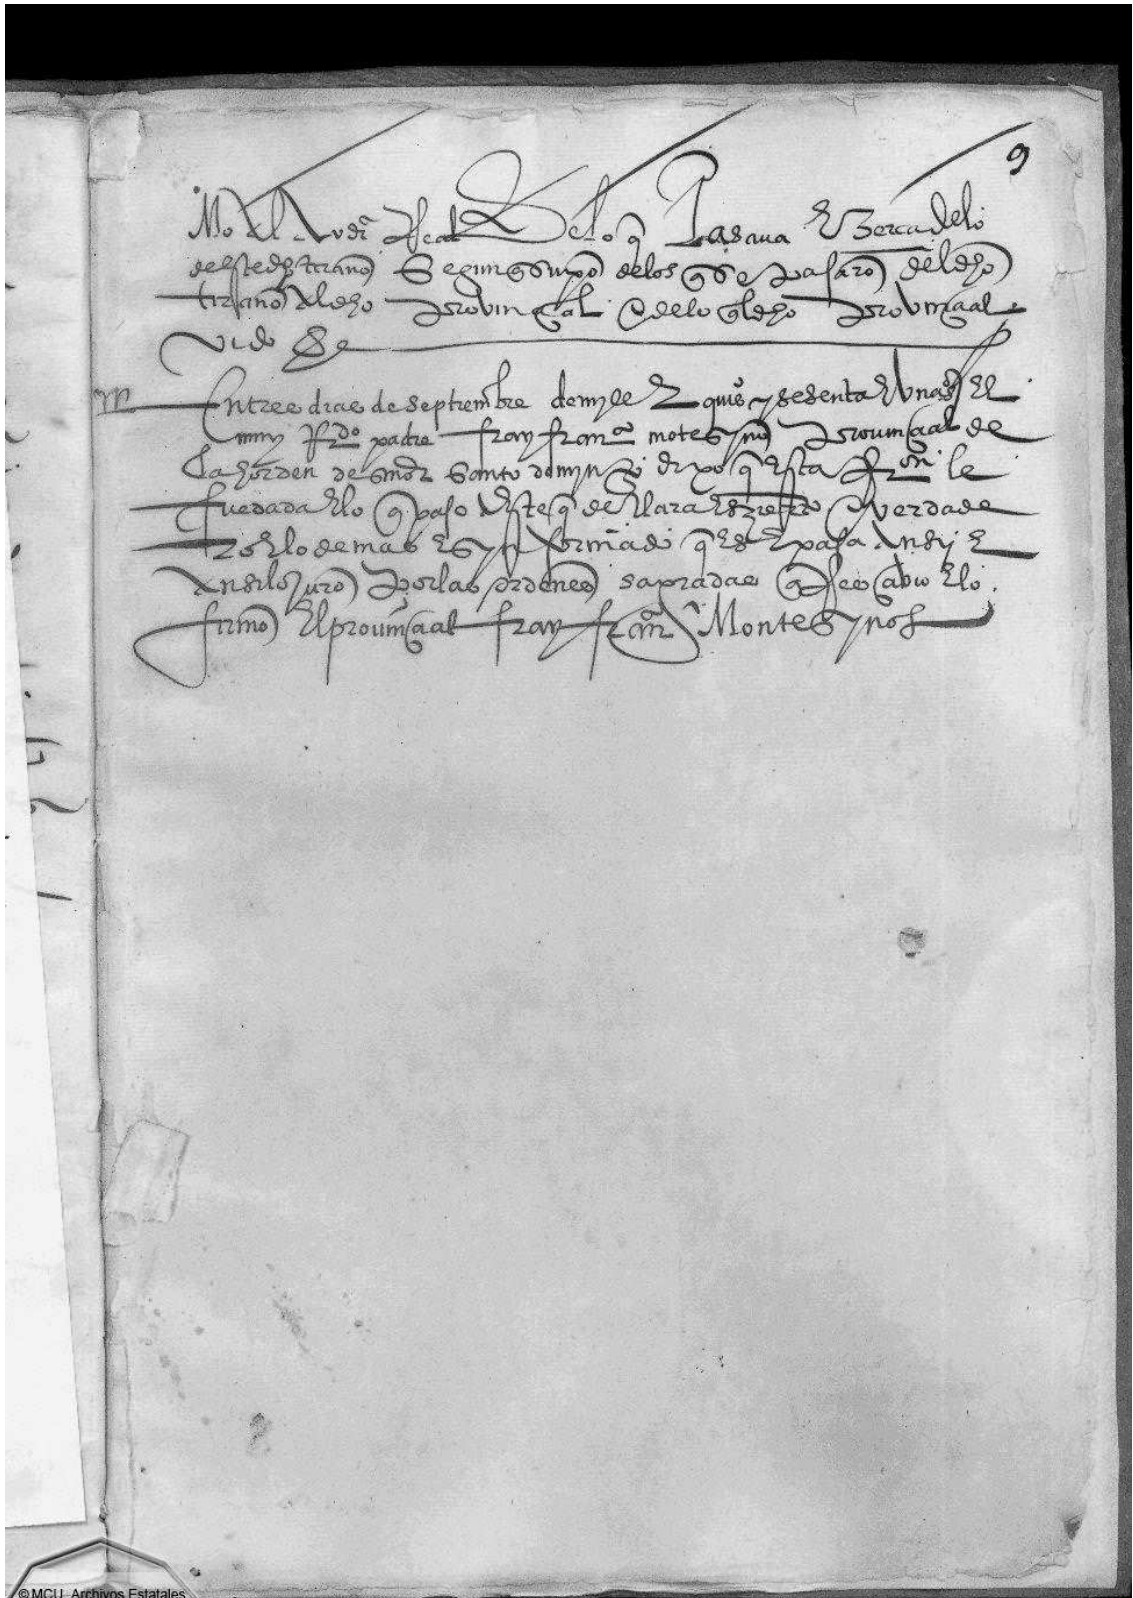 9
mo al audi Real de lo q pasava Zerca de lo
deste dho tirano segun q supo de los q se pasaro del dho
tirano al dho provinçial e de lo q l dho provinçial
vido
En treze dias de septiembre de myll e qui°s y sesenta e un as el
muy Rdo padre fray fran.co motesyno provinçial de
la horden de señor santo domyngo dixo q esta le
fue dada e lo q paso este q declara es çierto e verdade
ro e lo demas es ynformado q es e pasa ansy e
ansi lo juro por las ordenes sagradas q Resçibio e lo
firmo el provinçial fray fran.co Montesynos
© MCU. Archivos Estatales